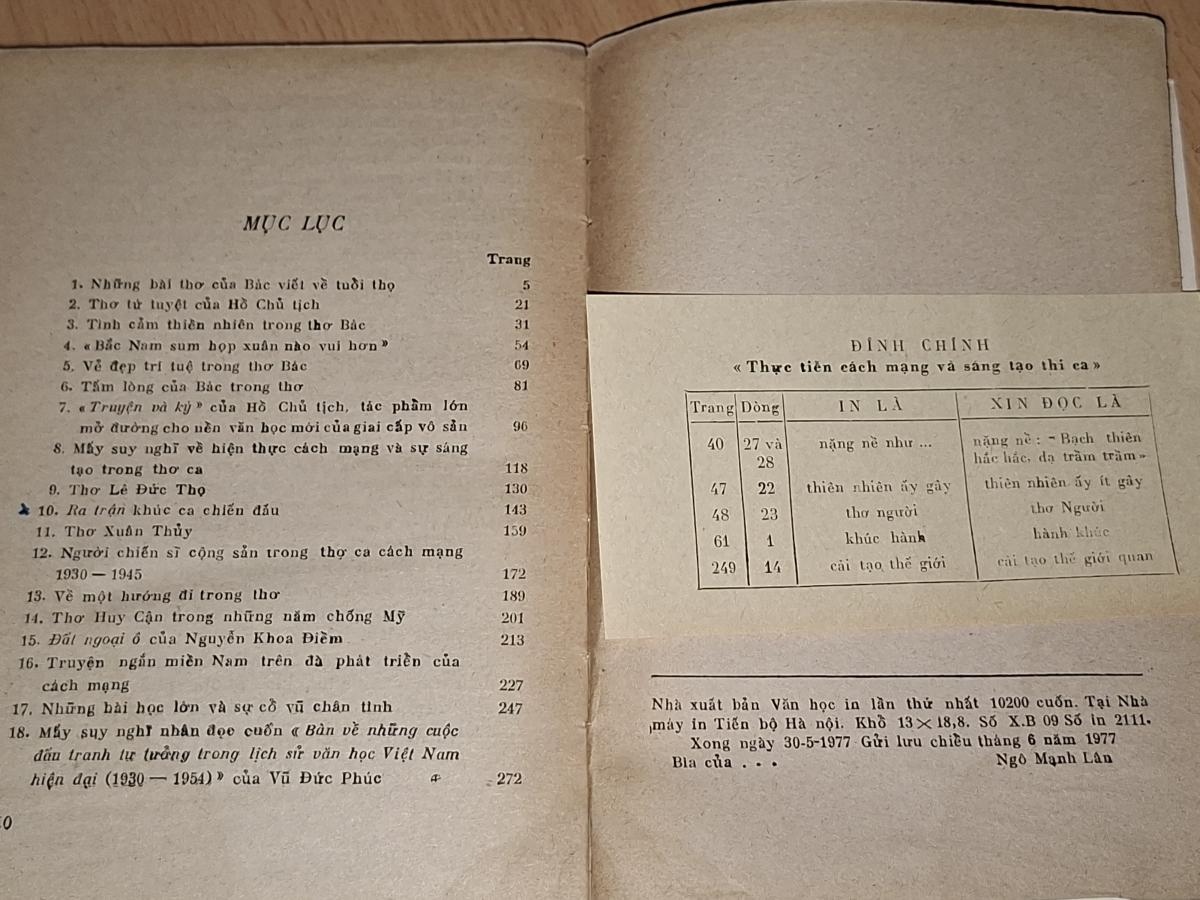 MỤC LỤC
Trang
1. Những bài thơ của Bác viết về tuổi thọ 5
2. Thơ tứ tuyệt của Hồ Chủ tịch 21
3. Tình cảm thiên nhiên trong thơ Bác 31
4. «Bắc Nam sum họp xuân nào vui hơn» 54
5. Vẻ đẹp trí tuệ trong thơ Bác 69
6. Tấm lòng của Bác trong thơ 81
7. «Truyện và ký» của Hồ Chủ tịch, tác phẩm lớn
mở đường cho nền văn học mới của giai cấp vô sản 96
8. Mấy suy nghĩ về hiện thực cách mạng và sự sáng
tạo trong thơ ca 118
9. Thơ Lê Đức Thọ 130
10. Ra trận khúc ca chiến đấu 143
11. Thơ Xuân Thủy 159
12. Người chiến sĩ cộng sản trong thơ ca cách mạng
1930 — 1945 172
13. Về một hướng đi trong thơ 189
14. Thơ Huy Cận trong những năm chống Mỹ 201
15. Đất ngoại ô của Nguyễn Khoa Điềm 213
16. Truyện ngắn miền Nam trên đà phát triển của
cách mạng 227
17. Những bài học lớn và sự cổ vũ chân tình 247
18. Mấy suy nghĩ nhân đọc cuốn «Bàn về những cuộc
đấu tranh tư tưởng trong lịch sử văn học Việt Nam
hiện đại (1930 — 1954)» của Vũ Đức Phúc 272
ĐÍNH CHÍNH
«Thực tiễn cách mạng và sáng tạo thi ca»
Trang Dòng IN LÀ XIN ĐỌC LÀ
40 27 và 28 nặng nề như ... nặng nề: «Bạch thiên
hắc hắc, dạ trầm trầm»
47 22 thiên nhiên ấy gây thiên nhiên ấy ít gây
48 23 thơ người thơ Người
61 1 khúc hành hành khúc
249 14 cải tạo thế giới cải tạo thế giới quan
Nhà xuất bản Văn học in lần thứ nhất 10200 cuốn. Tại Nhà
máy in Tiến bộ Hà nội. Khổ 13×18,8. Số X.B 09 Số in 2111.
Xong ngày 30-5-1977 Gửi lưu chiểu tháng 6 năm 1977
Bìa của . . . Ngô Mạnh Lân